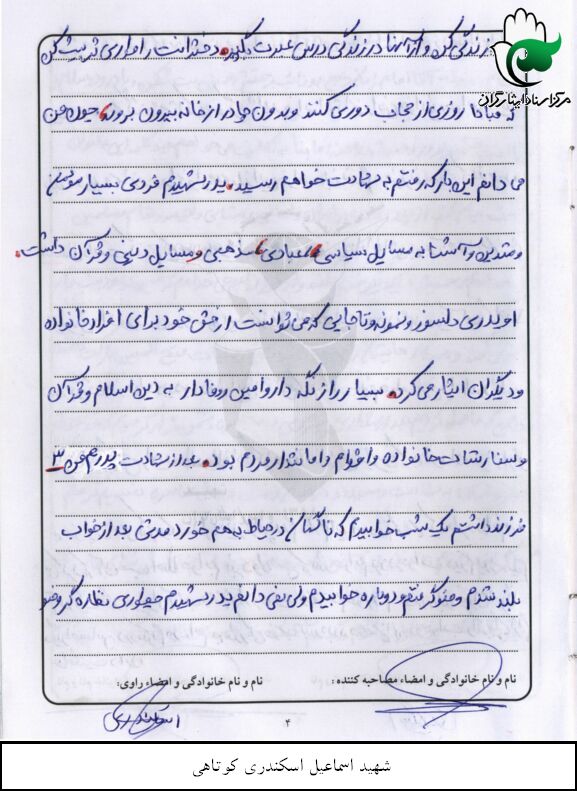 مرکز اسناد ایثارگران
زندگی کن و از آنها در زندگی درس عبرت بگیر. دخترانت را طوری تربیت کن
که مبادا روزی از حجاب دوری کنند و بدون چادر از خانه بیرون بروند، چون من
می دانم این بار که رفتم به شهادت خواهم رسید. پدر شهیدم فردی بسیار مؤمن
و متدین و آشنا به مسایل سیاسی، عبادی، مذهبی و مسایل دینی و قرآن داشت.
او پدری دلسوز و نمونه و تا جایی که می توانست از حق خود برای افراد خانواده
و دیگران ایثار می کرد. بسیار راز نگه دار و امین و وفادار به دین اسلام و قرآن
و سفارشات خانواده و اقوام و امانتدار مردم بود. بعد از شهادت پدرم من ۳
فرزند داشتم یک شب خوابیدم که ناگهان در حیاط به هم خورد مدتی بعد از خواب
بلند شدم و وضو گرفتم و دوباره خوابیدم ولی نمی دانم پدر شهیدم چطوری نظاره گر وضو
نام و نام خانوادگی و امضاء مصاحبه کننده :
نام و نام خانوادگی و امضاء راوی:
۴
شهید اسماعیل اسکندری کوتاهی